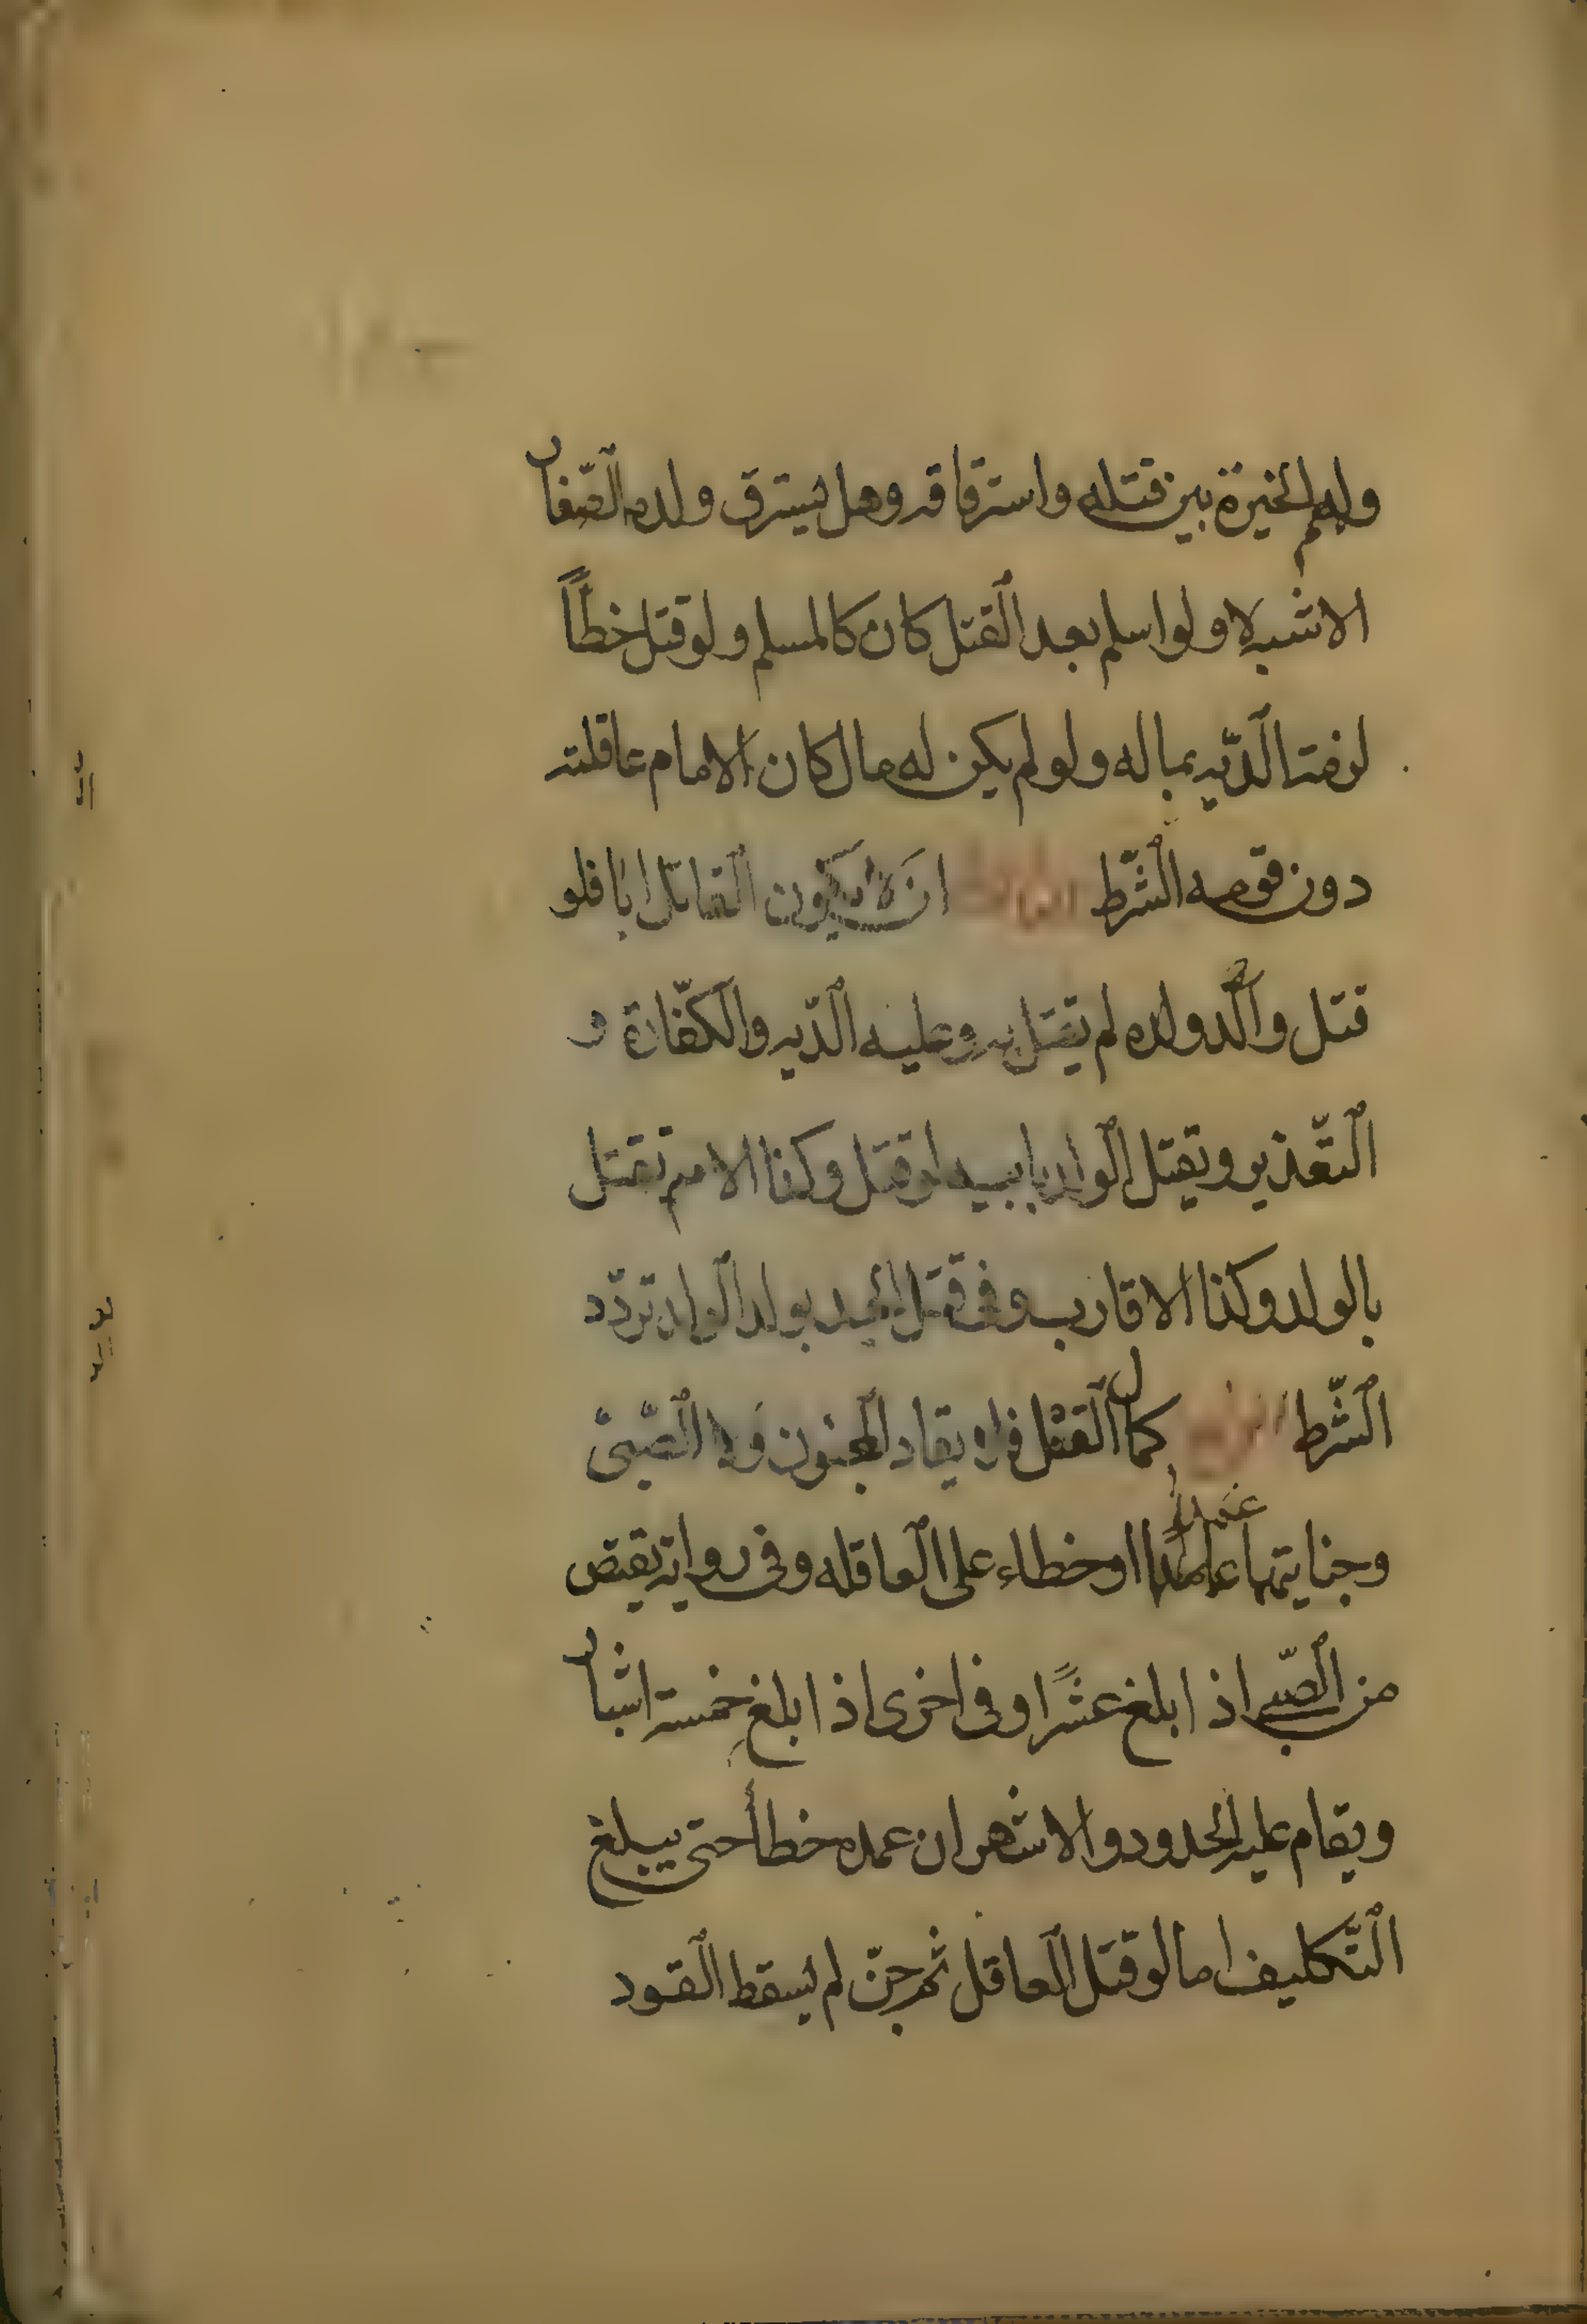 ولهم الخيرة بين قتله واسترقاقه وهل يسترق ولده الصّغار
الاشبه لا ولو اسلم بعد القتل كان كالمسلم ولو قتل خطأً
لزمته الدّيه بماله ولو لم يكن له مال كان الامام عاقلته
دون قومه الشّرط الثالث ان لا يكون القاتل ابا فلو
قتل والد ولده لم يقتل به وعليه الدّيه والكفّارة و
التّعذير ويقتل الولد بابيه لو قتل وكذا الام تقتل
بالولد وكذا الاقارب وفى قتل الجد بولد الولد تردّد
الشّرط الرابع كمال العقل فلا يقاد المجنون ولا الصّبىّ
وجنايتهما عمداً او خطاء على العاقله وفى رواية يقتص
من الصّبى اذا بلغ عشرًا وفى اخرى اذا بلغ خمسة اشبار
ويقام عليه الحدود والاشهر ان عمده خطأ حتى يبلغ
التّكليف اما لو قتل العاقل ثم جنّ لم يسقط القود